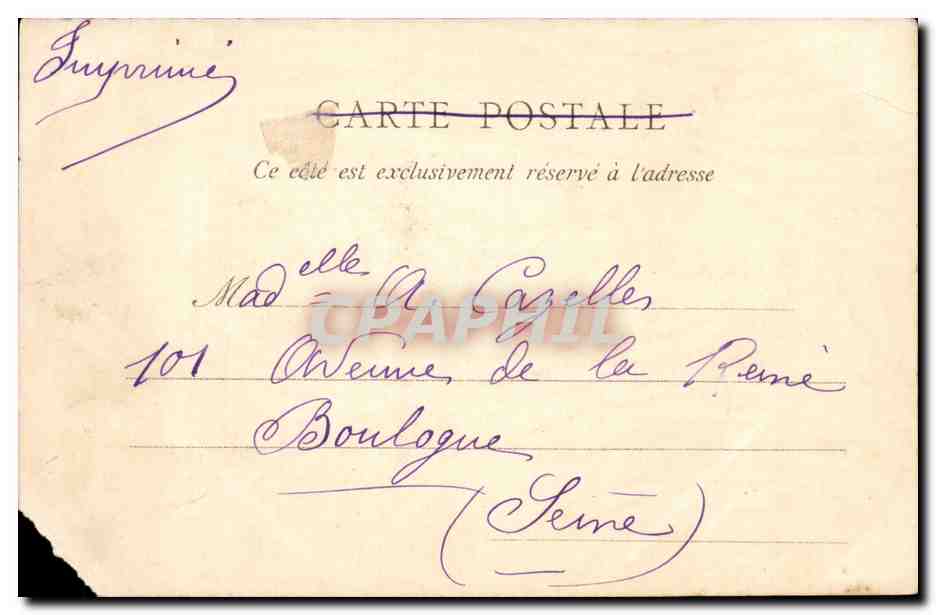 Imprimé
CARTE POSTALE
Ce côté est exclusivement réservé à l'adresse
Madelle A. Cazelles
CPAPHIL
101 Avenue de la Reine
Boulogne
(Seine)